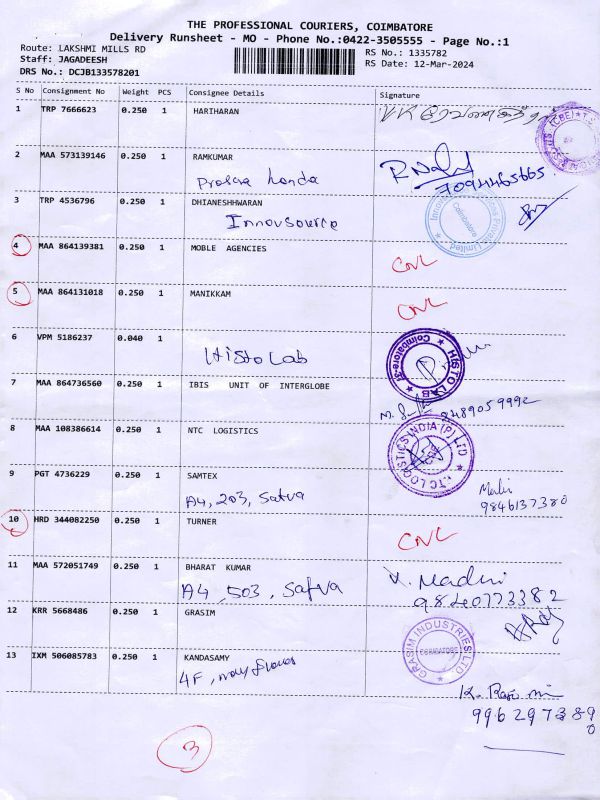 THE PROFESSIONAL COURIERS, COIMBATORE
Delivery Runsheet - MO - Phone No.:0422-3505555 - Page No.:1
Route: LAKSHMI MILLS RD
Staff: JAGADEESH
DRS No.: DCJB133578201
RS No.: 1335782
RS Date: 12-Mar-2024
S No Consignment No Weight PCS Consignee Details Signature
1 TRP 7666623 0.250 1 HARIHARAN
(CBE)
2 MAA 573139146 0.250 1 RAMKUMAR
Honda
7094465665
3 TRP 4536796 0.250 1 DHIANESHHWARAN
Innovsource
Coimbatore
Limited
4 MAA 864139381 0.250 1 MOBLE AGENCIES CNL
5 MAA 864131018 0.250 1 MANIKKAM CNL
6 VPM 5186237 0.040 1
Histo Lab
HISTO LAB
Coimbatore
7 MAA 864736560 0.250 1 IBIS UNIT OF INTERGLOBE
8489059992
8 MAA 108386614 0.250 1 NTC LOGISTICS
NTC LOGISTICS INDIA (P) LTD
9 PGT 4736229 0.250 1 SAMTEX
A4, 203, Satva
9846137380
10 HRD 344082250 0.250 1 TURNER CNL
11 MAA 572051749 0.250 1 BHARAT KUMAR
A4, 503, Satva
V. Madhu
9840773382
12 KRR 5668486 0.250 1 GRASIM
GRASIM INDUSTRIES LTD.
COIMBATORE
13 IXM 506085783 0.250 1 KANDASAMY
4F,
996297389
3